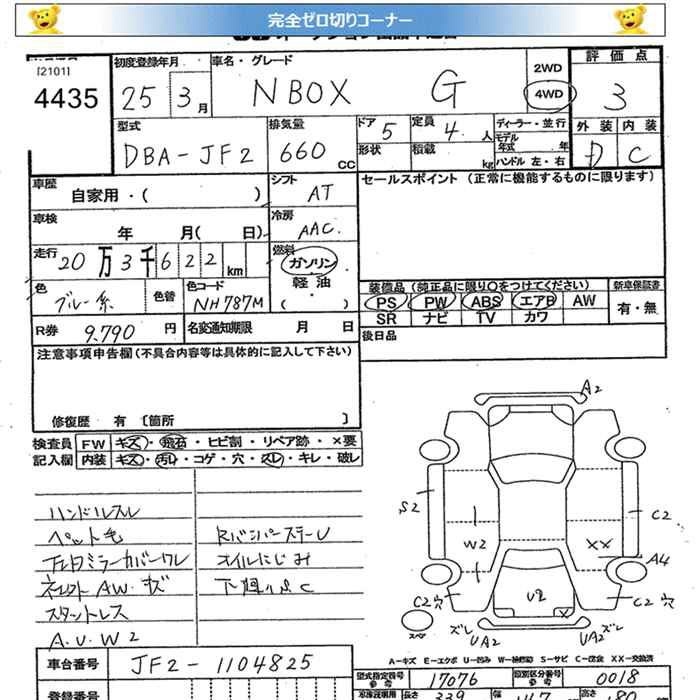 完全ゼロ切りコーナー
[2101]
4435
初度登録年月 車名・グレード 2WD 評価点
25 3月 NBOX G 4WD 3
型式 排気量 ドア 5 定員 4人 ディーラー・並行 外装 内装
DBA-JF2 660 CC 形状 積載 kg モデル年式 年 D C
ハンドル 左・右
車歴 自家用・( ) シフト AT セールスポイント (正常に機能するものに限ります)
車検 年 月( 日) 冷房 AAC
走行 20万3千622km 燃料 ガソリン・軽油・( )
色 ブルー系 色替 色コード NH787M
装備品 (純正品に限り○をつけてください) 新車保証書
PS PW ABS エアB AW 有・無
SR ナビ TV カワ
R券 9,790円 名変通知期限 月 日 後日品
注意事項申告欄 (不具合内容等は具体的に記入して下さい)
修復歴 有 〔箇所 〕
検査員記入欄 FW キズ・飛石・ヒビ割・リペア跡・×要
内装 キズ・汚れ・コゲ・穴・スレ・キレ・破レ
ハンドルスレ
ペット毛
RバンパーステーU
オイルにじみ
AW キズ
スタットレス
A.U.W2
車台番号 JF2-1104825
登録番号
A2
S2
W2
XX
C2
A4
C2穴
U2
X
C2穴
スペア
ズレ
UA2
UA2
ズレ
A-キズ E-エクボ U-凹み W-補修跡 S-サビ C-腐食 XX-交換済
型式指定番号 参考 17076 類別区分番号 参考 0018
長さ 339 幅 147 高さ 180